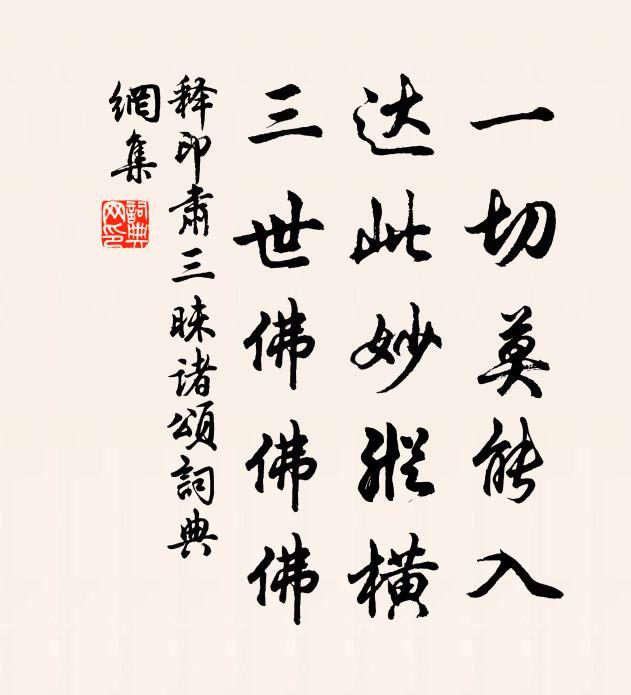 一切莫能入
达此妙纵横
三世佛佛佛
释印肃三昧诸颂詞典
網集
詞典
网